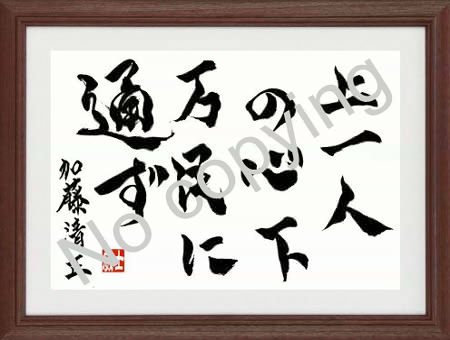 上一人
の心下
万民に
通ず
加藤清正
No copying